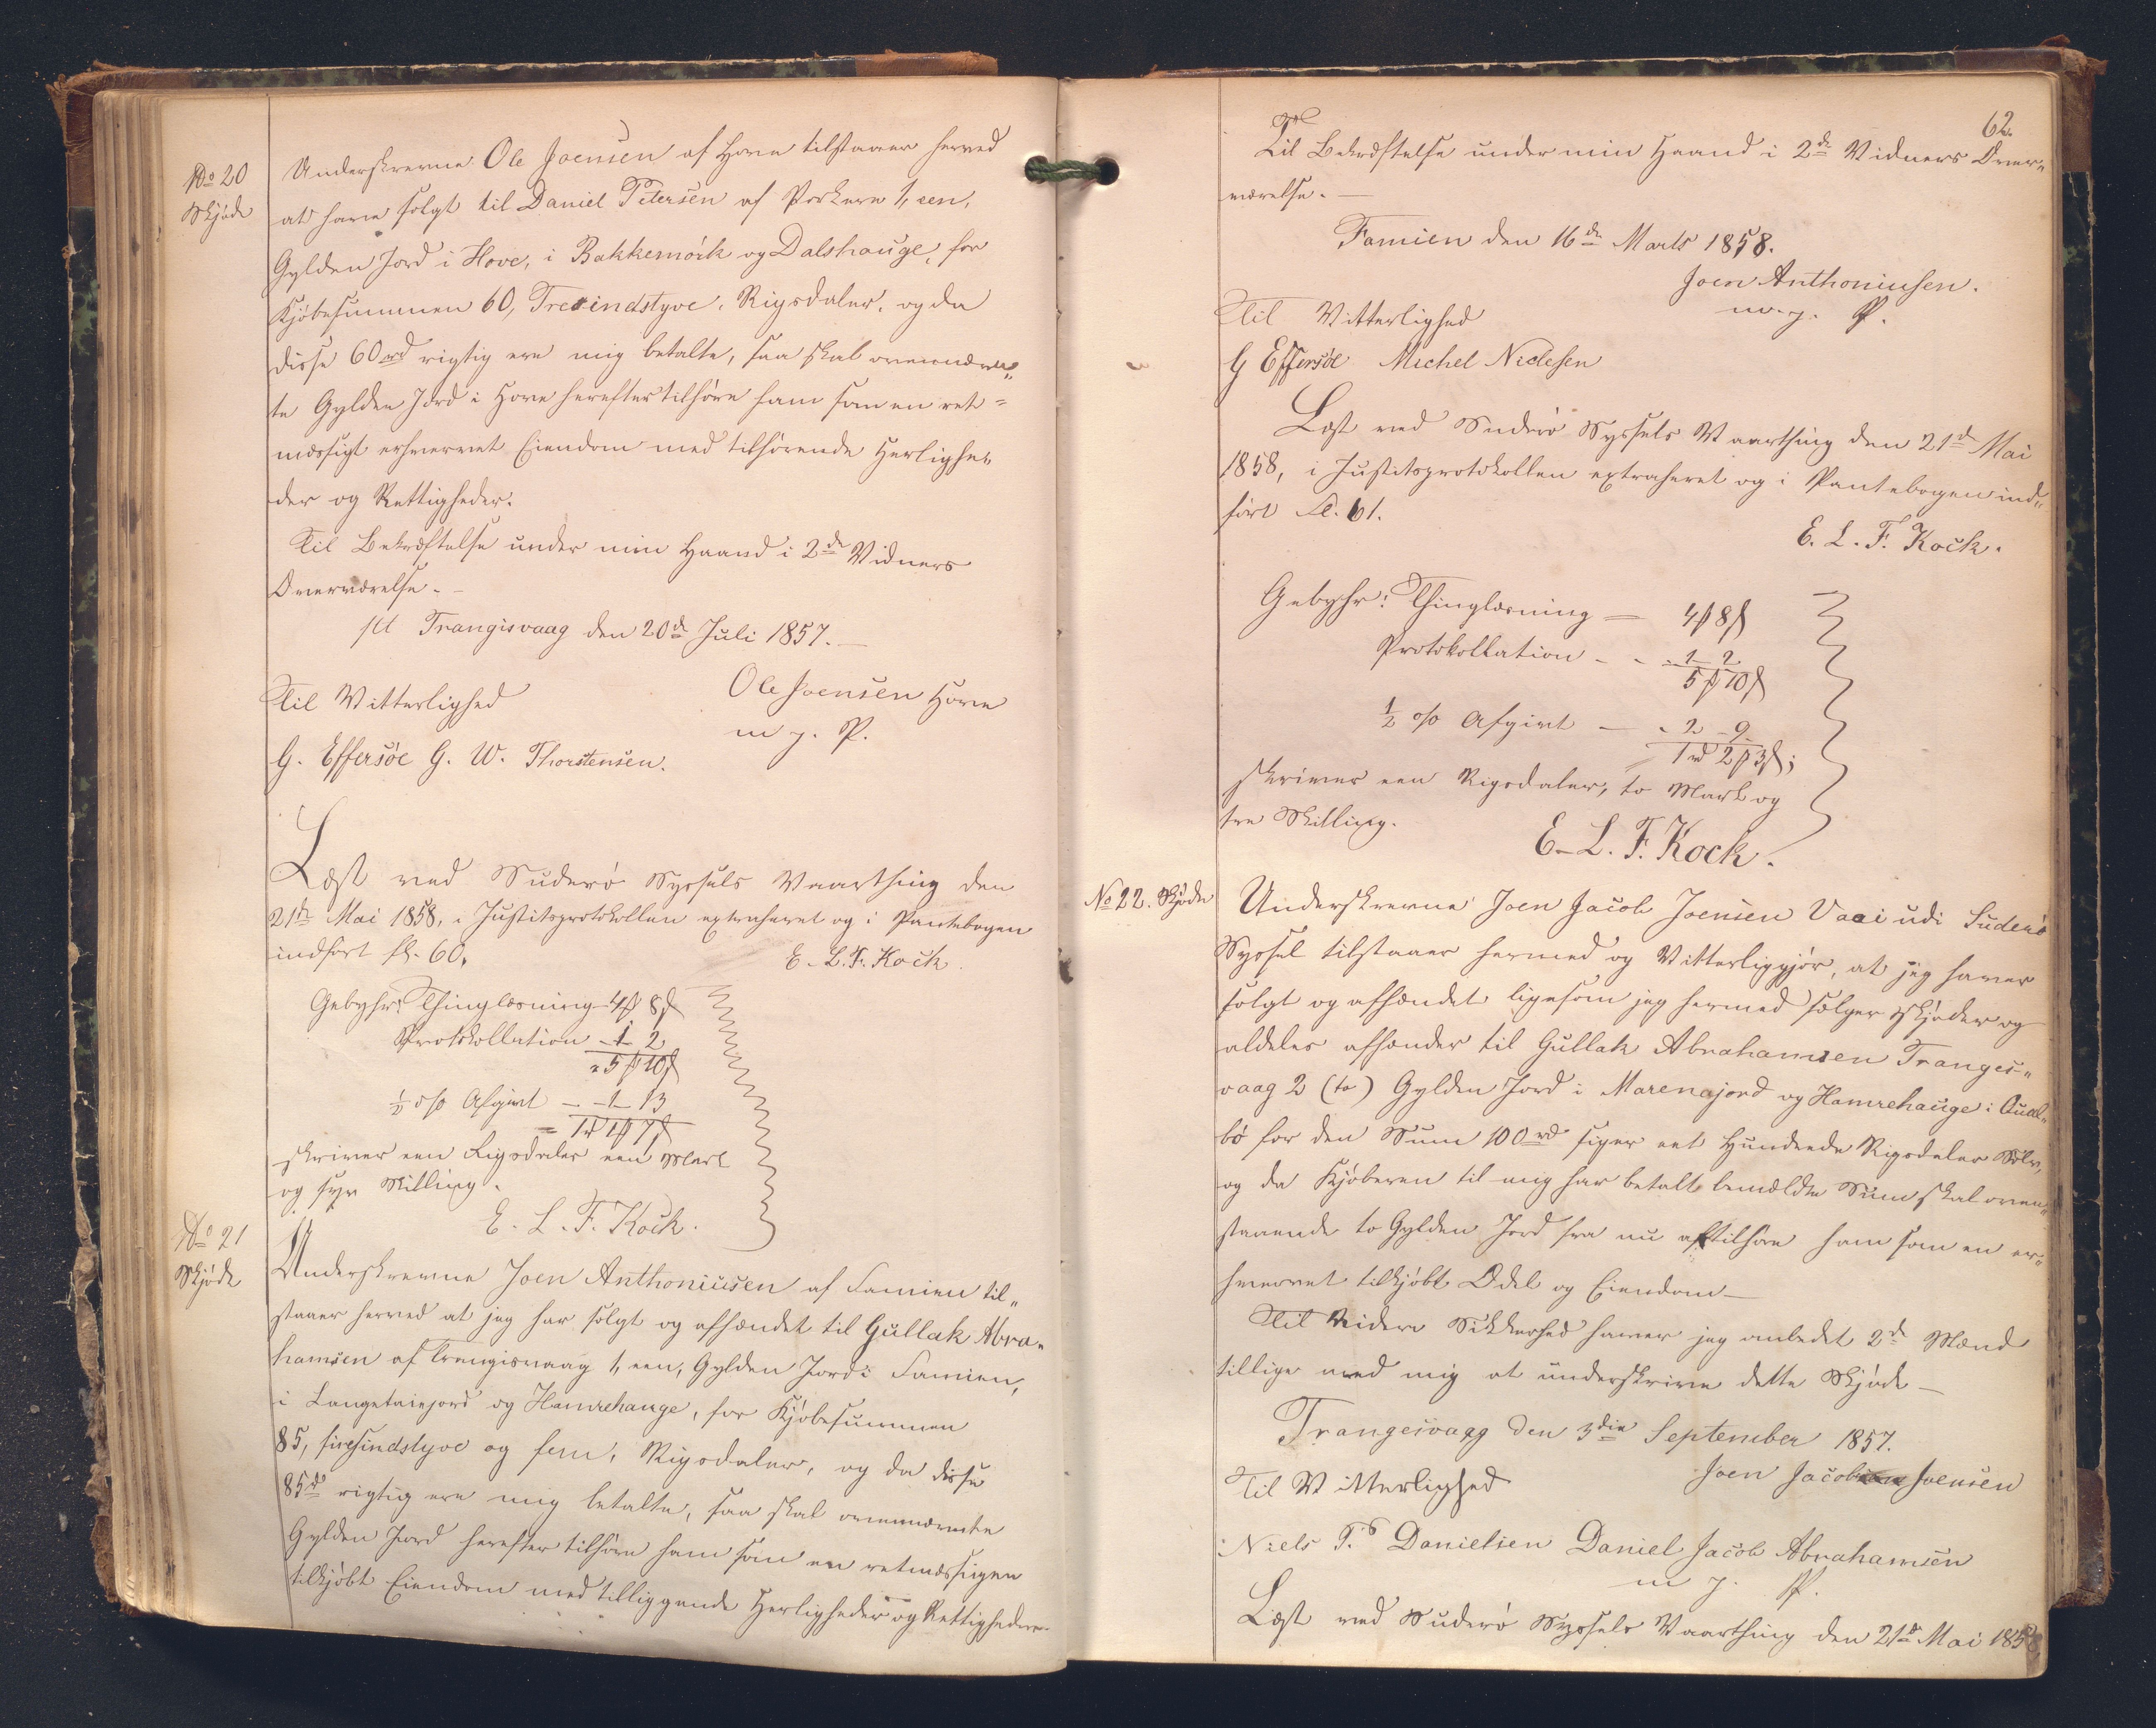 No 20
Skjøde
Underskrevne Ole Joensen af Hove tilstaaer herved
at have solgt til Daniel Petersen af Porkere 1, een,
Gylden Jord i Hove, i Bakkemörk og Dalshauge, for
Kjøbesummen 60, Tresindstyve, Rigsdaler, og da
disse 60 rd rigtig ere mig betalte, saa skal ovennævn„
te Gylden Jord i Hove herefter tilhøre ham som en ret=
mæssigt erhvervet Eiendom med tilhørende Herlighe„
der og Rettigheder.
Til Bekræftelse under min Haand i 2de Vidners
Overværelse. –
pt Trangisvaag den 20de Juli 1857. –
Til Vitterlighed
Ole Joensen Hove
m. f. P.
G. Effersöe G. W. Thorstensen.
Læst ved Suderø Syssels Vaarthing den
21de Mai 1858, i Justitsprotokollen extraheret og i Pantebogen
indført fl. 60.
E. L. F. Kock
Gebyhr: Thinglæsning 4 ₰ 8 ß
Protokollation – 1 – 2
„ 5 ₰ 10 ß
½ o/o Afgivt – – 1 – 13
= 1 rd 1 ₰ 7 ß
skriver een Rigsdaler een Mark
og syv Skilling.
E. L. F. Kock.
No 21
Skjøde
Underskrevne Joen Anthoniusen af Famien til„
staaer herved at jeg har solgt og afhændet til Gullak Abra„
hamsen af Trangisvaag 1, een, Gylden Jord i Famien,
i Langetaiejord og Hamrehauge, for Kjøbesummen
85, firesindstyve og fem, Rigsdaler, og da disse
85 rd rigtig ere mig betalte, saa skal ovennævnte
Gylden Jord herefter tilhøre ham som en retmæssigen
tilkjøbt Eiendom med tilliggende Herligheder og Rettigheder.
62.
Til Bekræftelse under min Haand i 2de Vidners Over„
værelse. –
Famien den 16de Marts 1858.
Joen Anthoniusen.
m. f. P.
Til Vitterlighed
G Effersöe Michel Niclesen
Læst ved Suderø Syssels Vaarthing den 21de Mai
1858, i Justitsprotokollen extraheret og i Pantebogen ind„
ført Fl. 61.
E. L. F. Kock.
Gebyhr: Thinglæsning – 4 ₰ 8 ß
Protokollation – – 1 – 2
5 ₰ 10 ß
½ o/o Afgivt – „ 2 – 9
1 rd 2 ₰ 3 ß;
skriver een Rigsdaler, to Mark og
tre Skilling.
E. L. F. Kock.
No 22. Skjøde
Underskrevne Joen Jacob Joensen Vaai udi Suderö
Syssel tilstaaer hermed og Vitterliggjør, at jeg haver
solgt og afhændet ligesom jeg hermed sælger skjøder og
aldeles afhænder til Gullak Abrahamsen Tranges„
vaag 2 (to) Gylden Jord i Marenajord og Hamrehauge i Qual„
bö for den Sum 100 rd siger eet Hundrede Rigsdaler Sølv,
og da Kjøberen til mig har betalt bemældte Sum skal oven„
staaende to Gylden Jord fra nu af tilhøre ham som en er„
hvervet tilkjøbt Odel og Eiendom –
Til Videre Sikkerhed haver jeg anledet 2de Mænd
tillige med mig at underskrive dette Skjøde –
Trangesvaag den 3die September 1857.
Til Vitterlighed
Joen Jacob Joensen
Niels P. Danielsen Daniel Jacob Abrahamsen
m f. P.
Læst ved Suderø Syssels Vaarthing den 21de Mai 1858